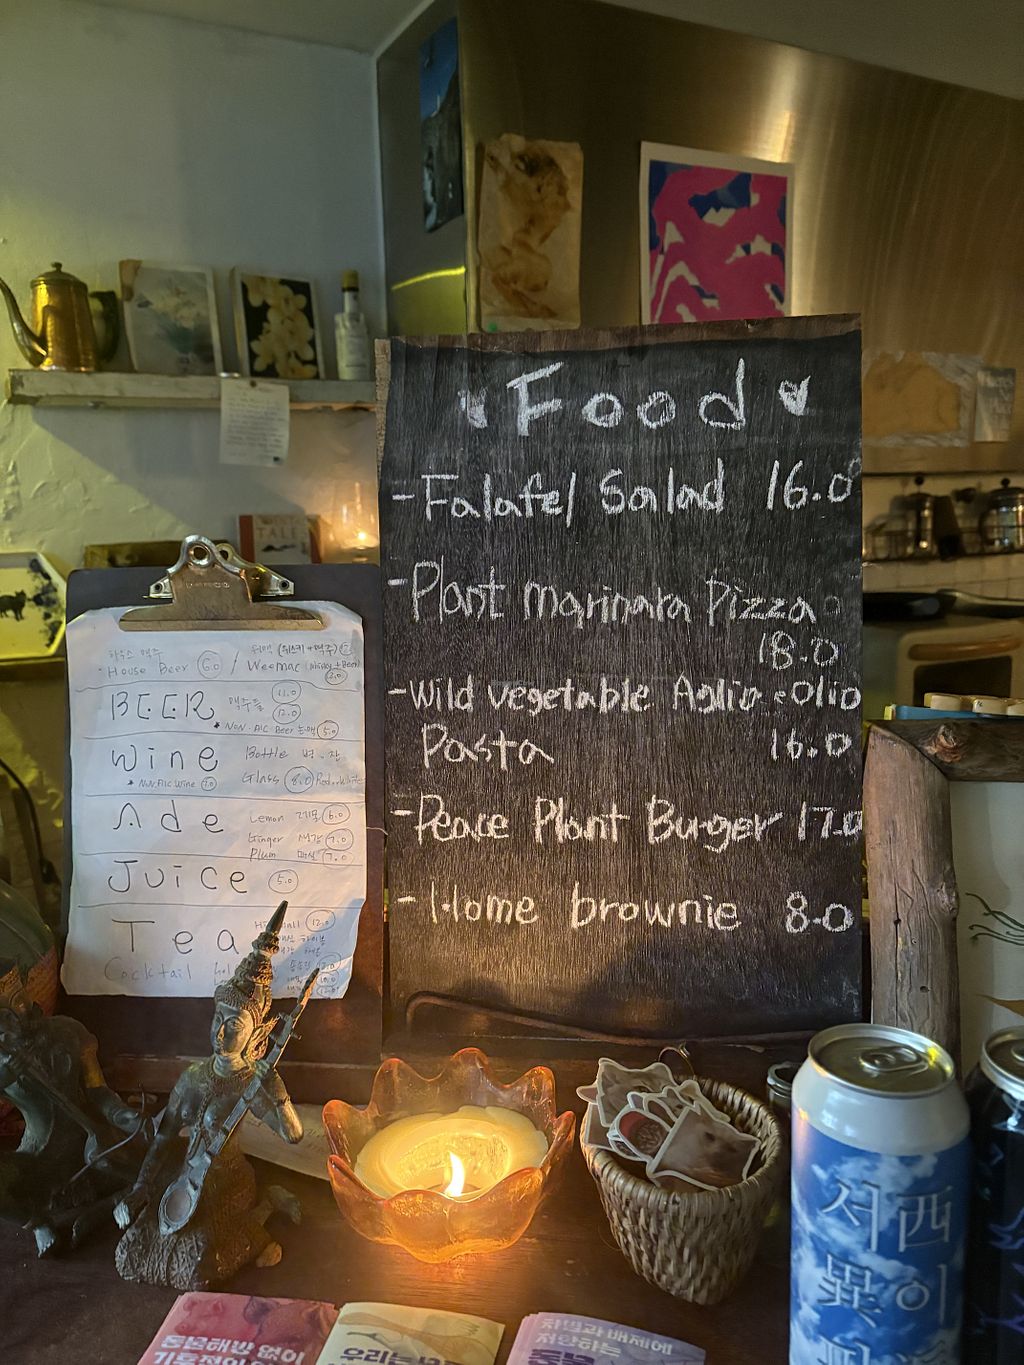 Food
-Falafel Salad 16.0
-Plant marinara Pizza
18.0
-wild vegetable Aglio e Olio
Pasta 16.0
-Peace Plant Burger 17.0
-Home brownie 8.0
하우스 맥주
House Beer 6.0 /
BEER 맥주들 11.0
12.0
* NON.Alc Beer 논알콜 5.0
Wine Bottle 병.잔
* NON.Alc Wine 7.0 Glass 8.0 Red.White
Ade Lemon 레몬 6.0
Ginger 생강 7.0
Plum 매실 7.0
Juice 5.0
Tea 12.0
Cocktail
서西
異이
돈분해방 없이
우리는
차별과 배제에
저항하는